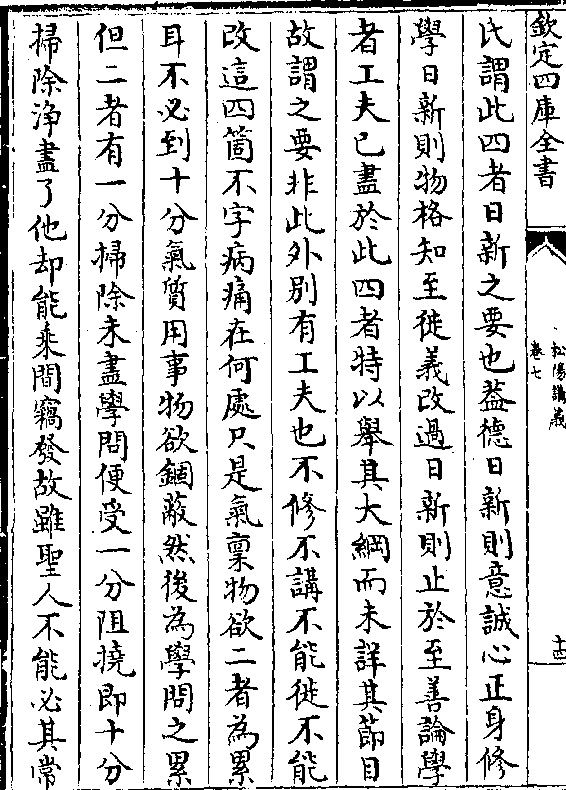 欽定四庫全書
松陽講義
卷七
十四
氏謂此四者日新之要也葢德日新則意誠心正身修
學日新則物格知至徙義改過日新則止於至善論學
者工夫已盡於此四者特以舉其大綱而未詳其節目
故謂之要非此外別有工夫也不修不講不能徙不能
改這四箇不字病痛在何處只是氣禀物欲二者為累
耳不必到十分氣質用事物欲錮蔽然後為學問之累
但二者有一分掃除未盡學問便受一分阻撓即十分
掃除浄盡了他却能乘間竊發故雖聖人不能必其常